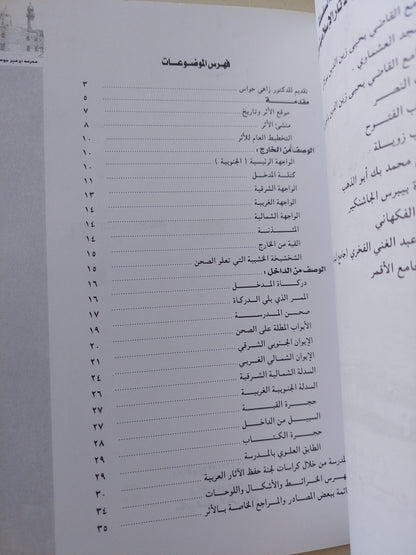 مدرسة الأمير جوهر
فهرس الموضوعات
تقديم للدكتور زاهي حواس ٣
مقدمة ٥
موقع الأثر وتاريخ ٧
منشئ الأثر ٨
التخطيط العام للأثر ١٠
الوصف من الخارج : ١٠
الواجهة الرئيسية ( الجنوبية ) ١٠
كتلة المدخل ١١
الواجهة الشرقية ١٣
الواجهة الغربية ١٤
الواجهة الشمالية ١٤
المئذنة ١٤
القبة من الخارج ١٥
الشخشيخة الخشبية التي تعلو الصحن ١٥
الوصف من الداخل :
دركاة المدخل ١٦
الممر الذي يلى الدركاة ١٦
صحن المدرسة ١٧
الأبواب المطلة على الصحن ١٩
الإيوان الجنوبي الشرقي ٢٠
الإيوان الشمالي الغربي ٢١
السدلة الشمالية الشرقية ٢٤
السدلة الجنوبية الغربية ٢٦
حجرة القبة ٢٧
السبيل من الداخل ٢٧
حجرة الكتاب ٢٨
الطابق العلوي بالمدرسة ٢٩
المدرسة من خلال كراسات لجنة حفظ الآثار العربية ٢٩
هرس الخرائط والأشكال واللوحات ٣٠
ائمة ببعض المصادر والمراجع الخاصة بالأثر ٣٤
٣٥
ع القاضي يحيى زين الدين
جد العشماوي
مع القاضي يحيى زين الدين
النصر
ب الفتوح
ب زويلة
محمد بك أبو الذهب
ة بيبرس الجاشنكير
الفكهاني
عبد الغني الفخري (جامع
جامع الأقمر